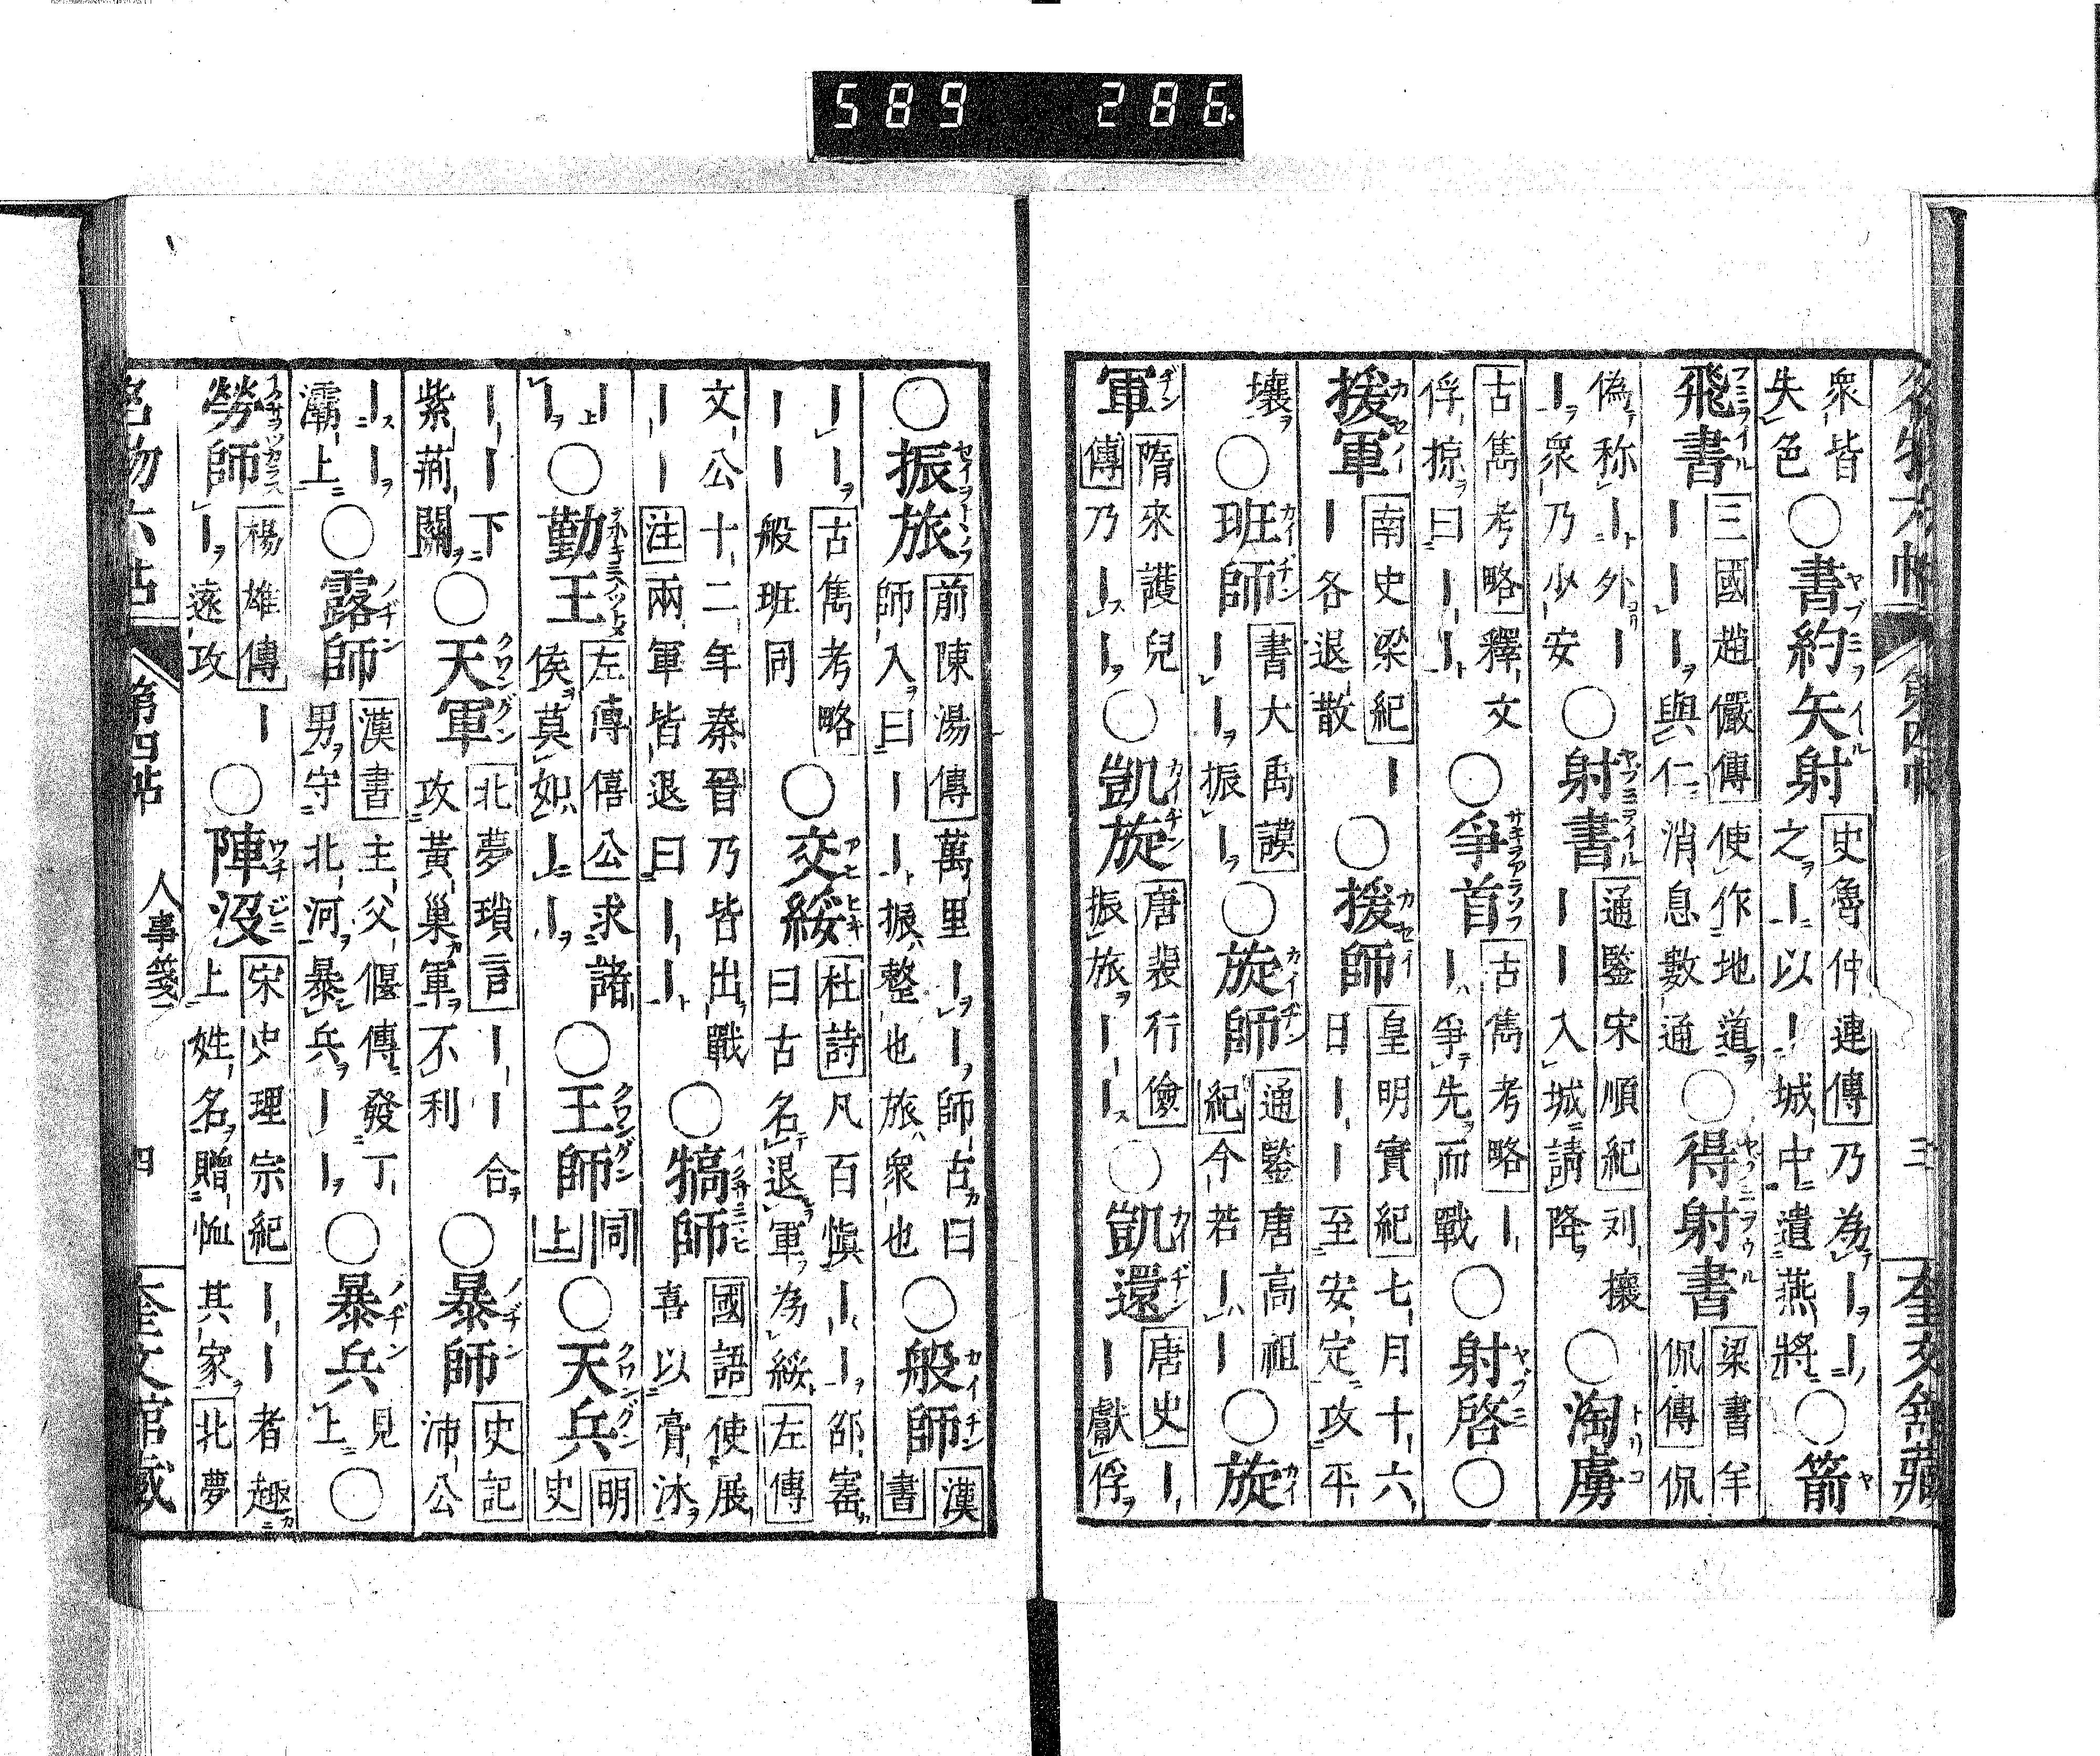 589 286
名物六帖 第四帖 三 奎文館藏
衆皆失色○書約矢射 史魯仲連傳 乃為｜｜之｜以｜城中遺燕將○箭
飛書 三國趙儼傳 使作地道｜｜｜與仁消息數通○得射書 梁書羊侃傳 侃
偽称｜外｜｜衆乃少安○射書 通鑒宋順紀 刘攘｜｜入城請降○淘虜
古雋考略 釋文俘掠曰｜｜○爭首 古雋考略 ｜｜爭先而戰○射啓○
援軍 南史梁紀 ｜｜各退散○援師 皇明實紀 七月十六日｜｜至安定攻平
壤○班師 書大禹謨 ｜｜振｜○旋師 通鑒唐高祖紀 今若｜｜○旋
軍 隋來護兒傳 乃｜｜○凱旋 唐裴行儉 振旅｜｜○凱還 唐史 ｜｜獻俘
○振旅 前陳湯傳 萬里｜｜師古曰師入曰｜｜振整也旅衆也○般師 漢書
｜｜ 古雋考略 ｜｜般班同○交綏 杜詩 凡百慎｜｜邵寚曰古名退軍為綏 左傳
文公十二年秦晉乃皆出戰｜｜ 注 兩軍皆退曰｜｜○犒師 國語 使展喜以膏沐
｜｜○勤王 左傳僖公 求諸侯莫如｜｜○王師 同上○天兵 明史
｜｜下紫荊關○天軍 北夢瑣言 ｜｜合攻黃巢軍不利○暴師 史記 沛公
｜｜灞上○露師 漢書 主父偃傳發丁男守北河暴兵｜｜○暴兵 見上○
勞師 楊雄傳 ｜｜遠攻○陣沒 宋史理宗紀 ｜｜者趣上姓名贈恤其家 北夢
名物六帖 第四帖 人事箋二 四 奎文館藏